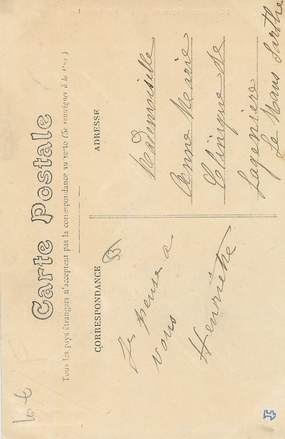 Carte Postale
Tous les pays étrangers n'acceptent pas la correspondance au verso (Se renseigner à la Poste)
CORRESPONDANCE
Je pense a
vous
Henriette
ADRESSE
Mademoiselle
Anne Marie
Clinique de
Le Mans Sarthe